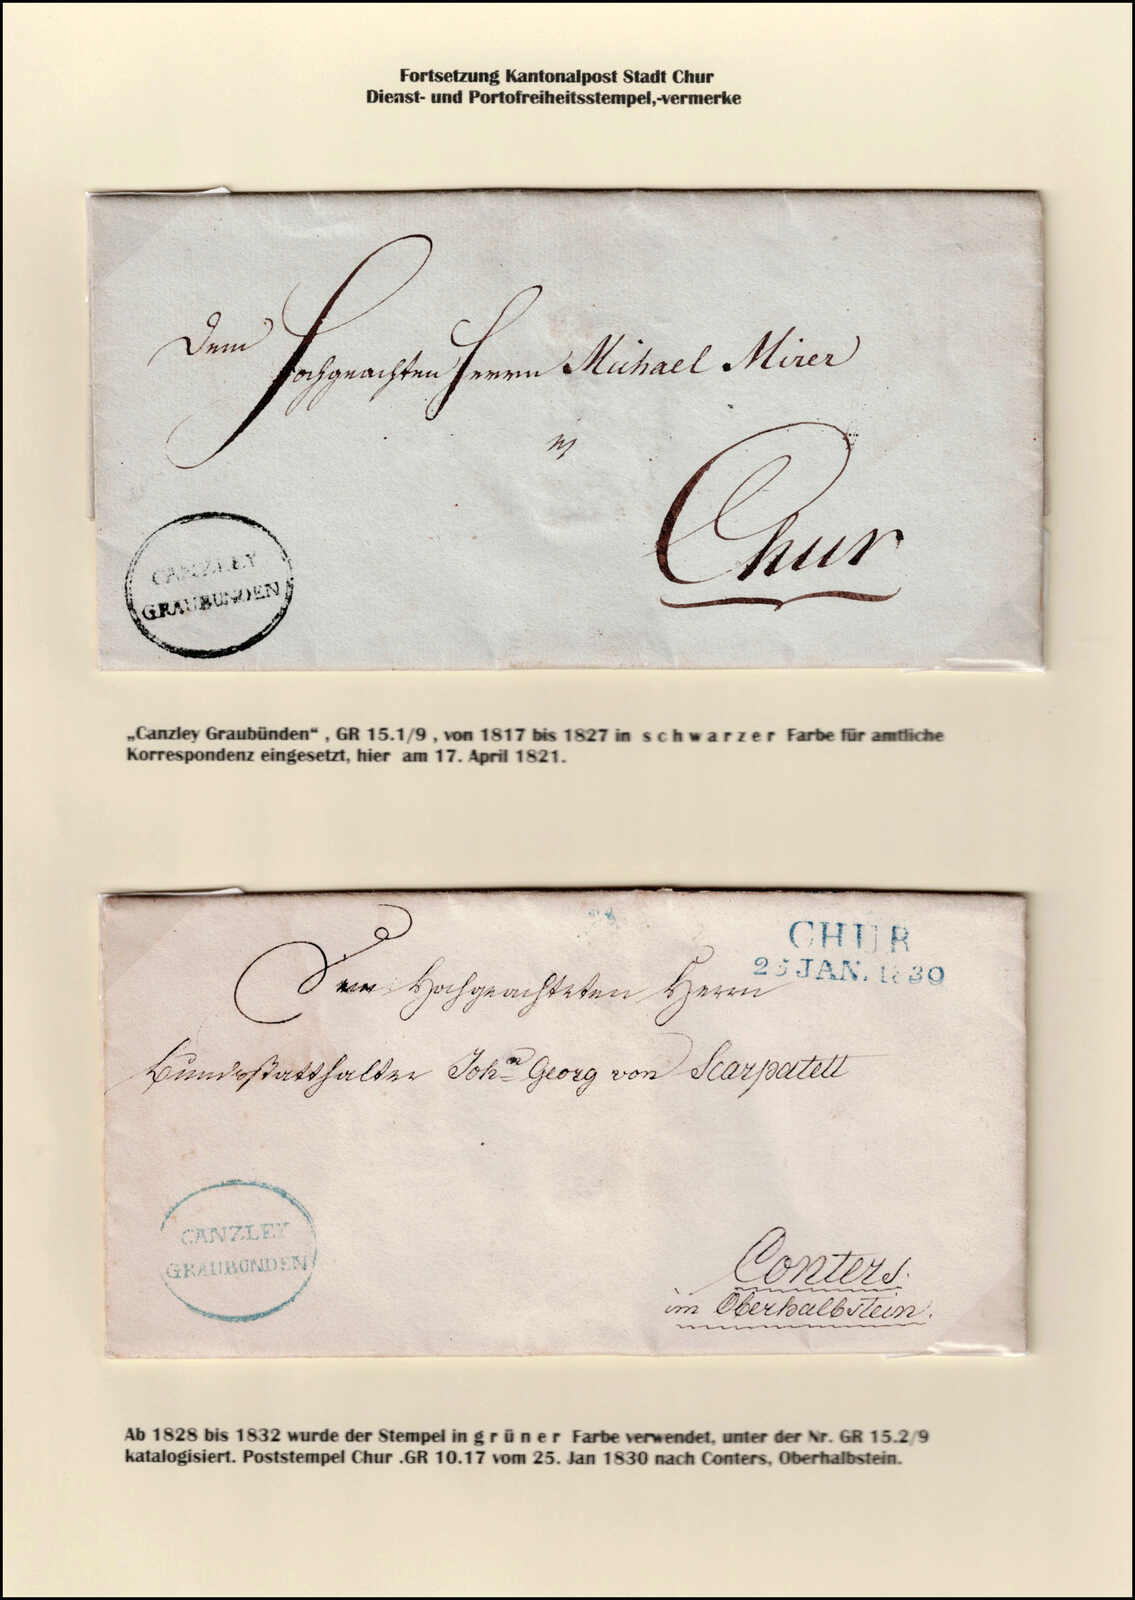 Fortsetzung Kantonalpost Stadt Chur
Dienst- und Portofreiheitsstempel,-vermerke
Dem Hochgeachten Herrn Michael Mirer
in
Chur
CANZLEY
GRAUBUNDEN
„Canzley Graubünden“ , GR 15.1/9 , von 1817 bis 1827 in s c h w a r z e r Farbe für amtliche
Korrespondenz eingesetzt, hier am 17. April 1821.
CHUR
25 JAN. 1830
Dem Hochgeachteten Herrn
Bundsstatthalter John Georg von Scarpatett
CANZLEY
GRAUBÜNDEN
Conters.
im Oberhalbstein.
Ab 1828 bis 1832 wurde der Stempel in g r ü n e r Farbe verwendet, unter der Nr. GR 15.2/9
katalogisiert. Poststempel Chur .GR 10.17 vom 25. Jan 1830 nach Conters, Oberhalbstein.